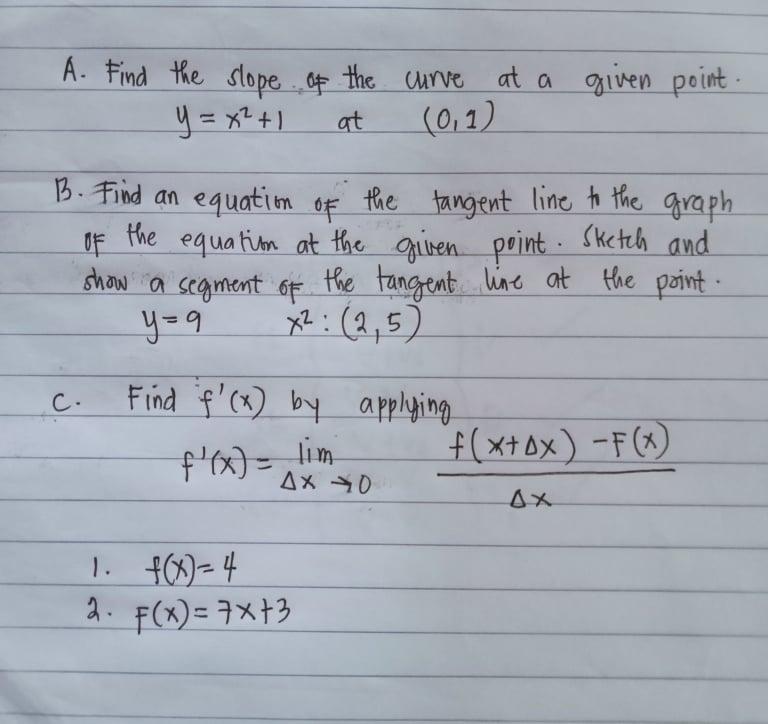 A. Find the slope of the curve at a given point.
y = x² + 1 at (0,1)
B. Find an equation of the tangent line to the graph
of the equation at the given point. Sketch and
show a segment of the tangent line at the point.
y = 9 x² : (2,5)
C. Find f'(x) by applying
f'(x) = lim Δx → 0 f(x+Δx) - F(x) / Δx
1. f(x) = 4
2. F(x) = 7x+3